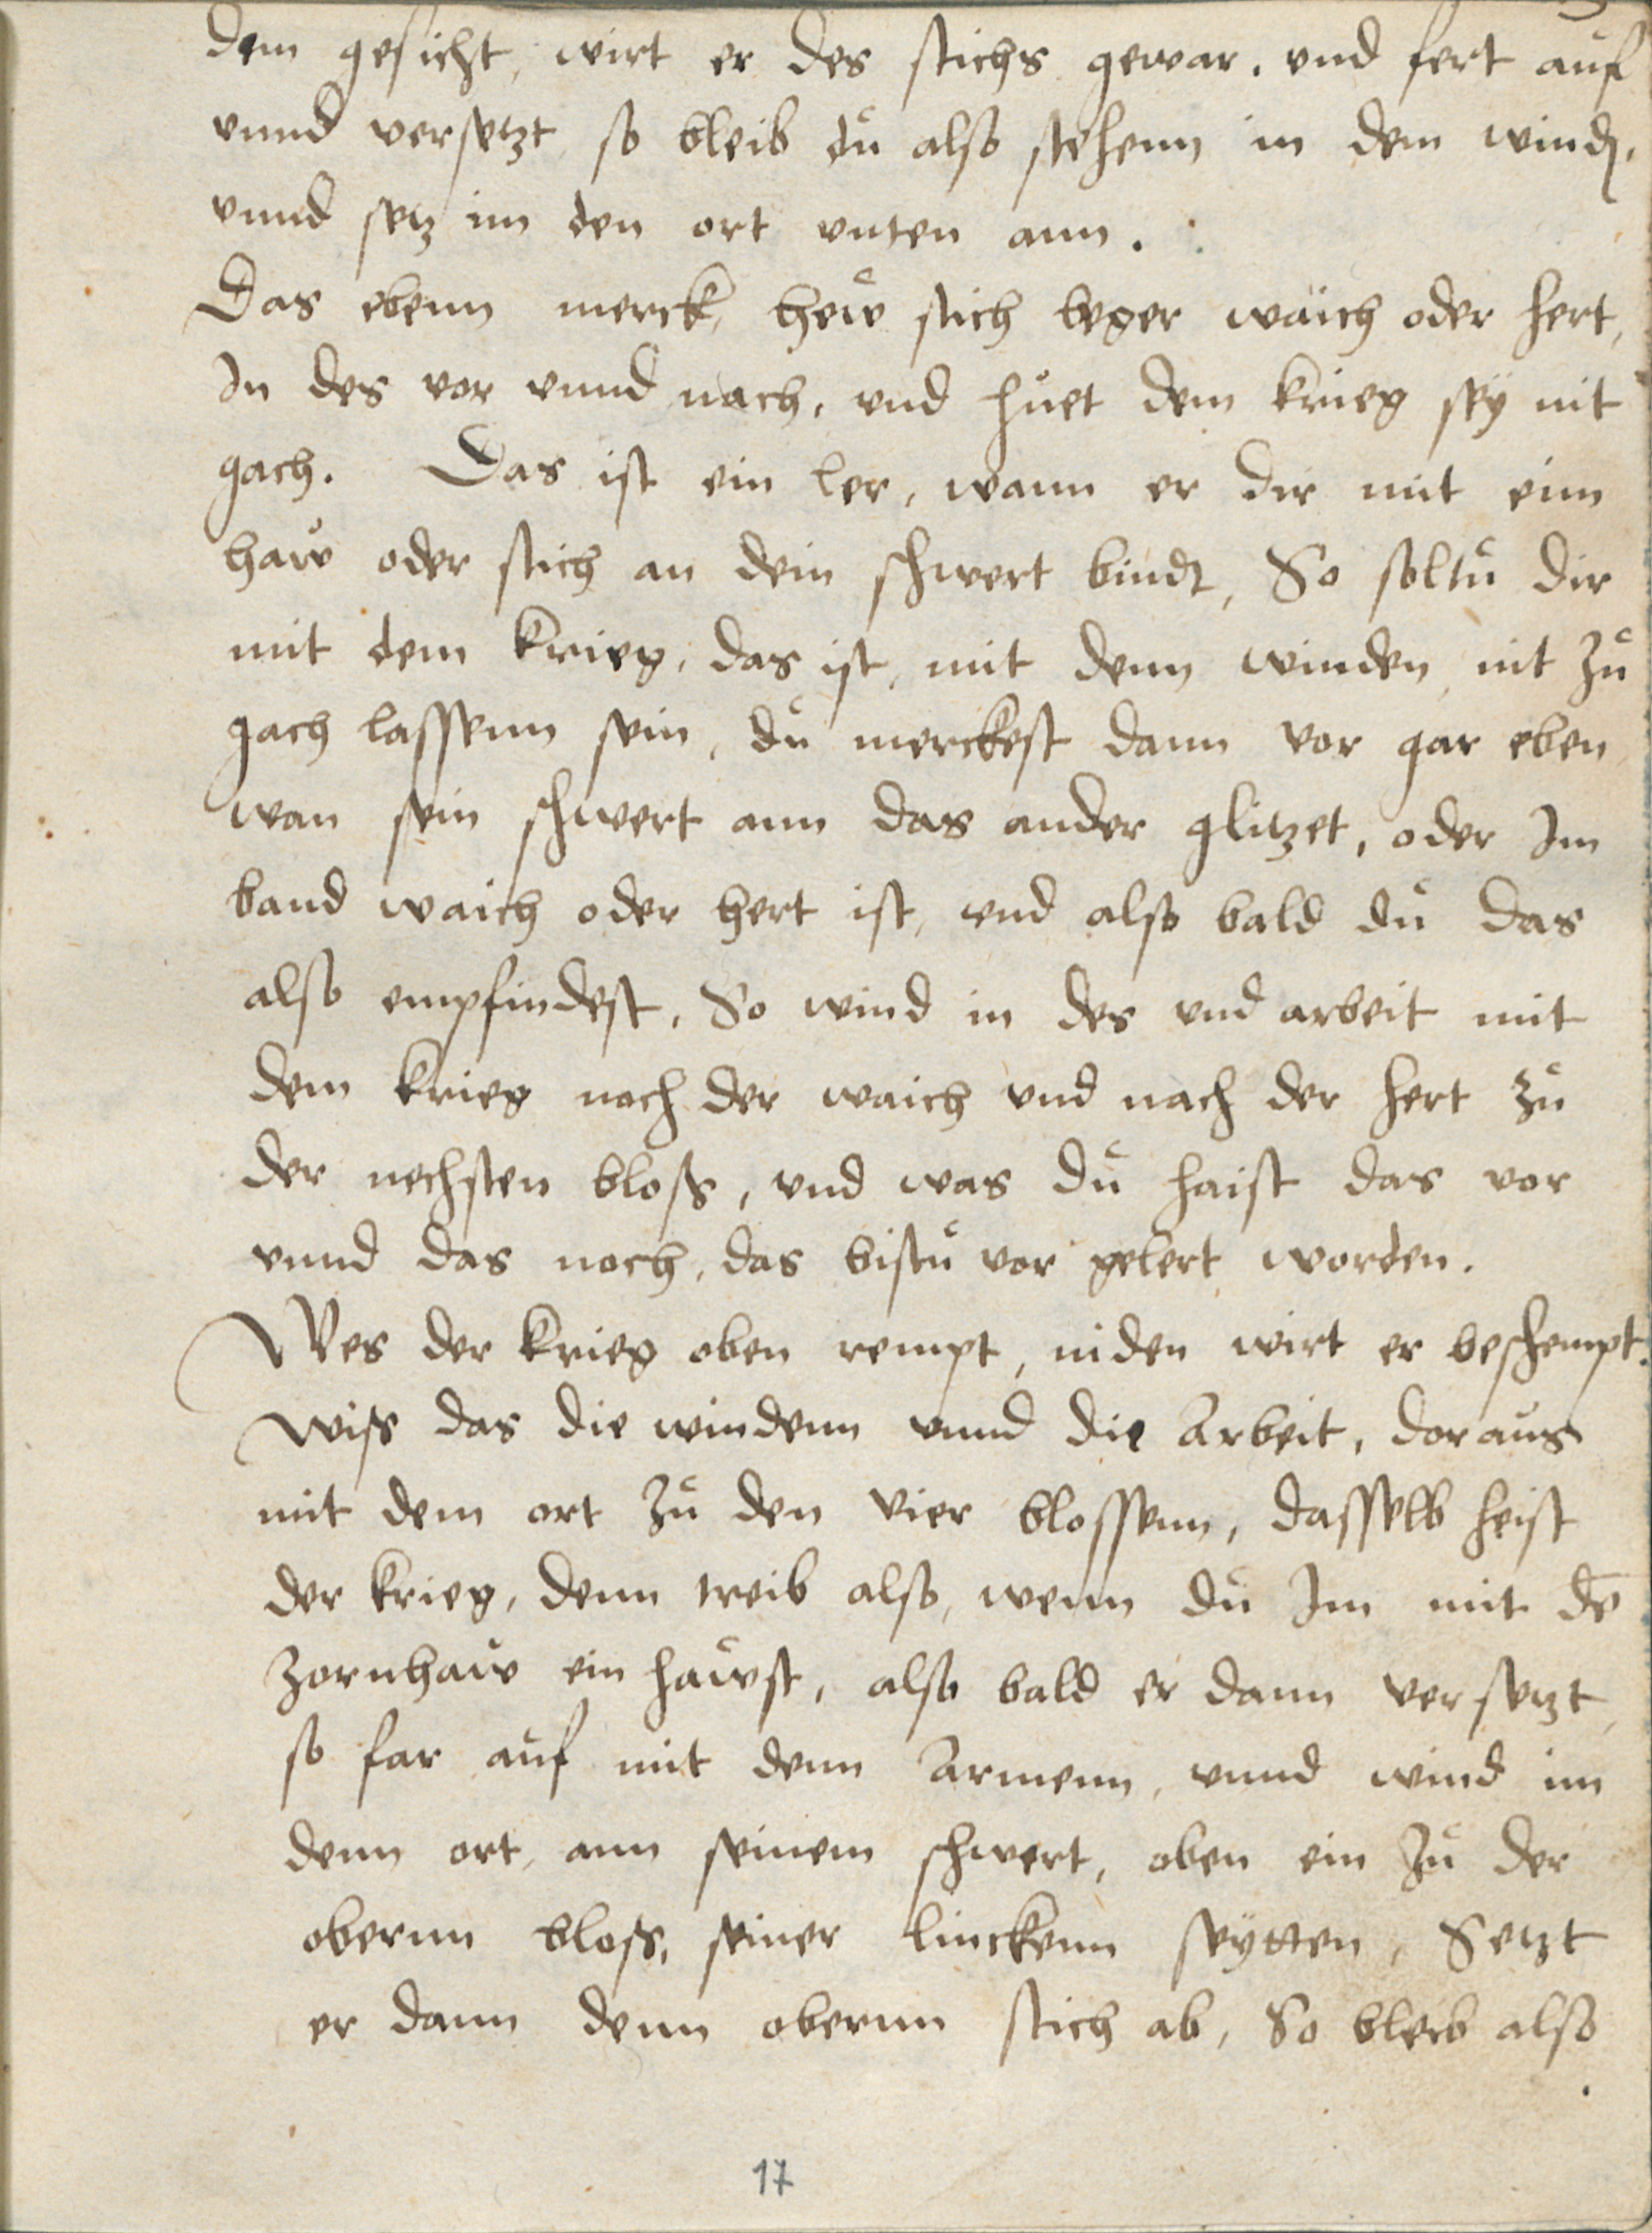 dem gesicht, wirt er des stichs gewar, vnd fert aůf
vnnd versetzt so bleib dů also stehenn in dem wind,
vnnd setz im den ort vnten ann.
Das ebenn merck, heẘ stich leger waich oder hert,
In des vor vnnd nach, vnd hůet dem krieg seÿ nit
gach. Das ist ein ler, wann er dir mit eim
haẘ oder stich an dein schwert bindt, So soltů dir
mit dem krieg, das ist, mit denn winden nit zů
gach lassenn sein, dů merckest dann vor gar eben,
wan sein schwert ann das ander glitzet, oder Im
band waich oder hert ist, vnd also bald dů das
also empfindest, So wind in des vnd arbeit mit
dem krieg nach der waich vnd nach der hert zů
der nechsten bloss, vnd was dů haist das vor
vnnd das noch, das bistů vor gelert worden.
Wes der krieg oben rempt, niden wirt er beschempt.
Wiss das die windenn vnnd die Arbeit, doraůs
mit dem ort zů den vier blossenn, dasselb heist
der krieg, denn treib also, wenn dů Im mit dē
zornhaẘ ein haẘst, also bald er dann versetzt,
so far aůf mit denn Armenn, vnnd wind im
denn ort, ann seinem schwert, oben ein zů der
obernn bloss, seiner linckenn seÿtten, Setzt
er dann denn obernn stich ab, So bleib also
17